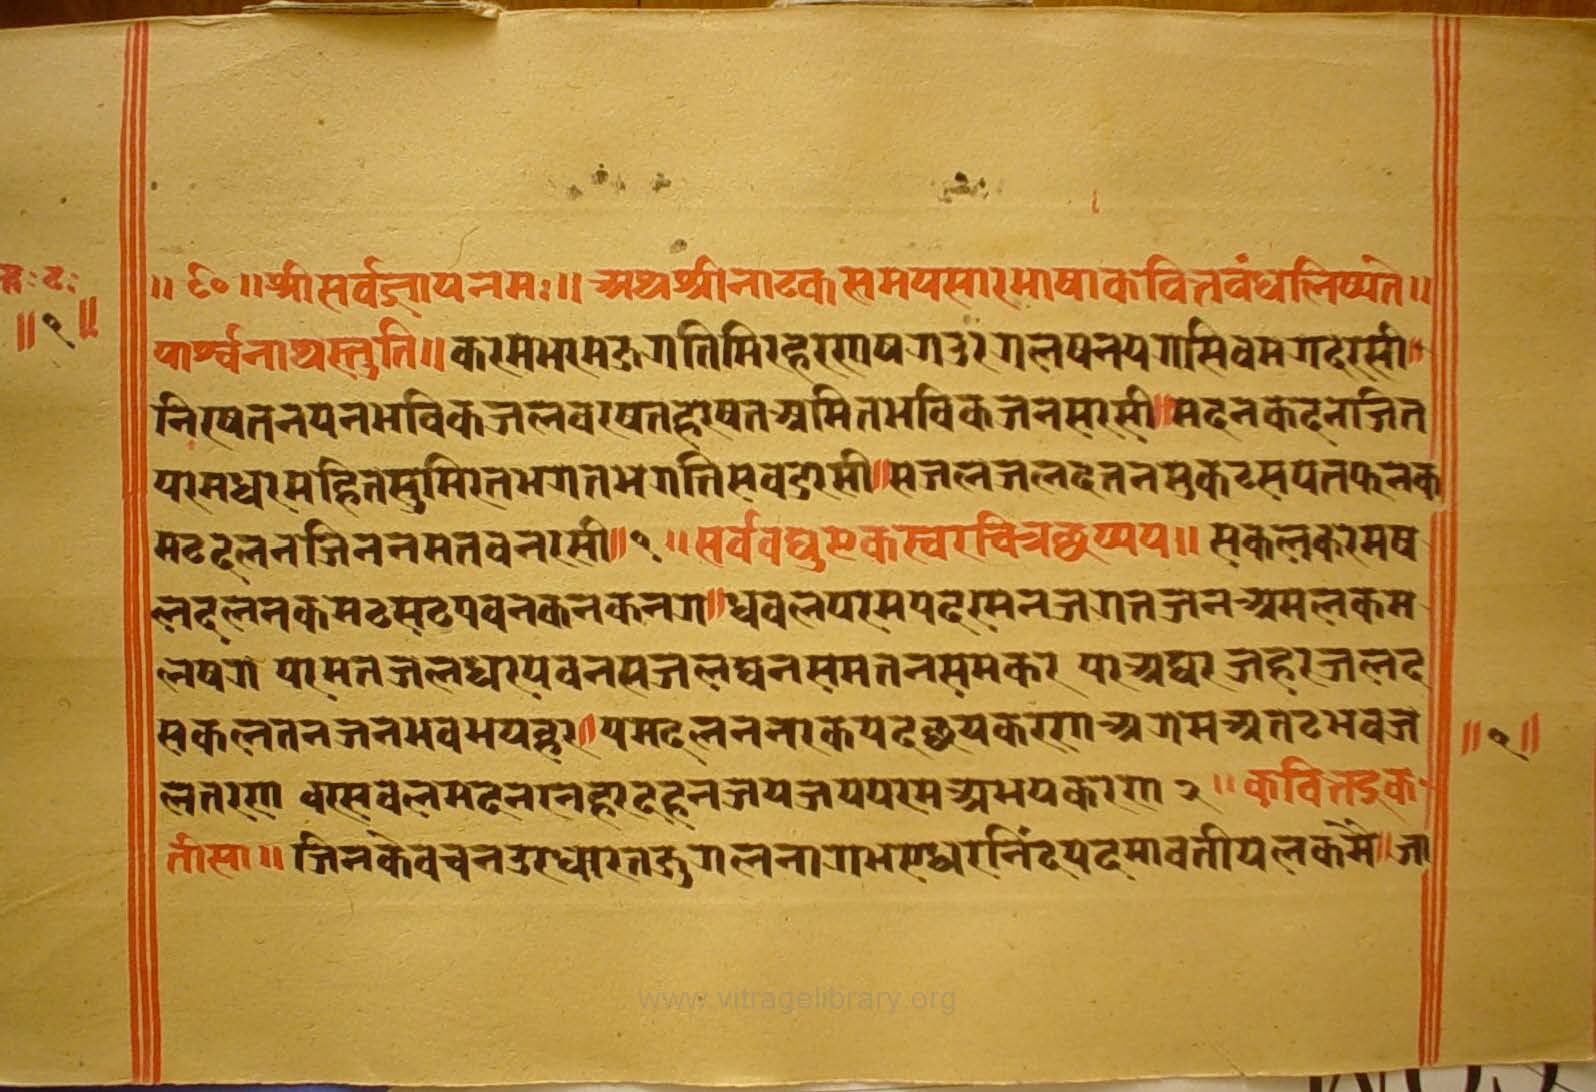 ॥ ६० ॥ श्रीसर्वज्ञायनमः॥ अथश्रीनाटकसमयसारभाषाकवितबंधलिष्यते॥
॥ १ ॥
पार्श्वनाथस्तुति॥ करमभरमजगतिमिरहरणषगउरगलषनपगसिवमगदरसी॥
निरषतनयनभविकजलवरषतहरषतअमितभविकजनसरसी॥ मदनकदनजित
परमधरमहितसुमिरतभगतभगतिसबडरसी॥ सजलजलदतनमुकटसपतफनक
मठदलनजिननमतवनरसी॥ १ ॥ सर्ववघुएकस्वरचित्रछप्पय॥ सकलकरमष
लदलनकमठसठपवनकनकनग॥ धवलपरमपदरमनजगतजनअमलकम
लषग परमतजलधरपवनसजलघनसमतनसमकर परअघरजहरजलद
सकलतनजनभवभयहर॥ यमदलननरकपदछयकरणअगमअतटभवज
॥ १ ॥
लतरण वरसबलमदनवनहरदहनजयजयपरमअभयकरण २ ॥ कवितइक
तीसा॥ जिनकेवचनउरधारतजुगलनागभएधरनिंदपदमावतीपलकमैं॥ जा
www.vitragelibrary.org